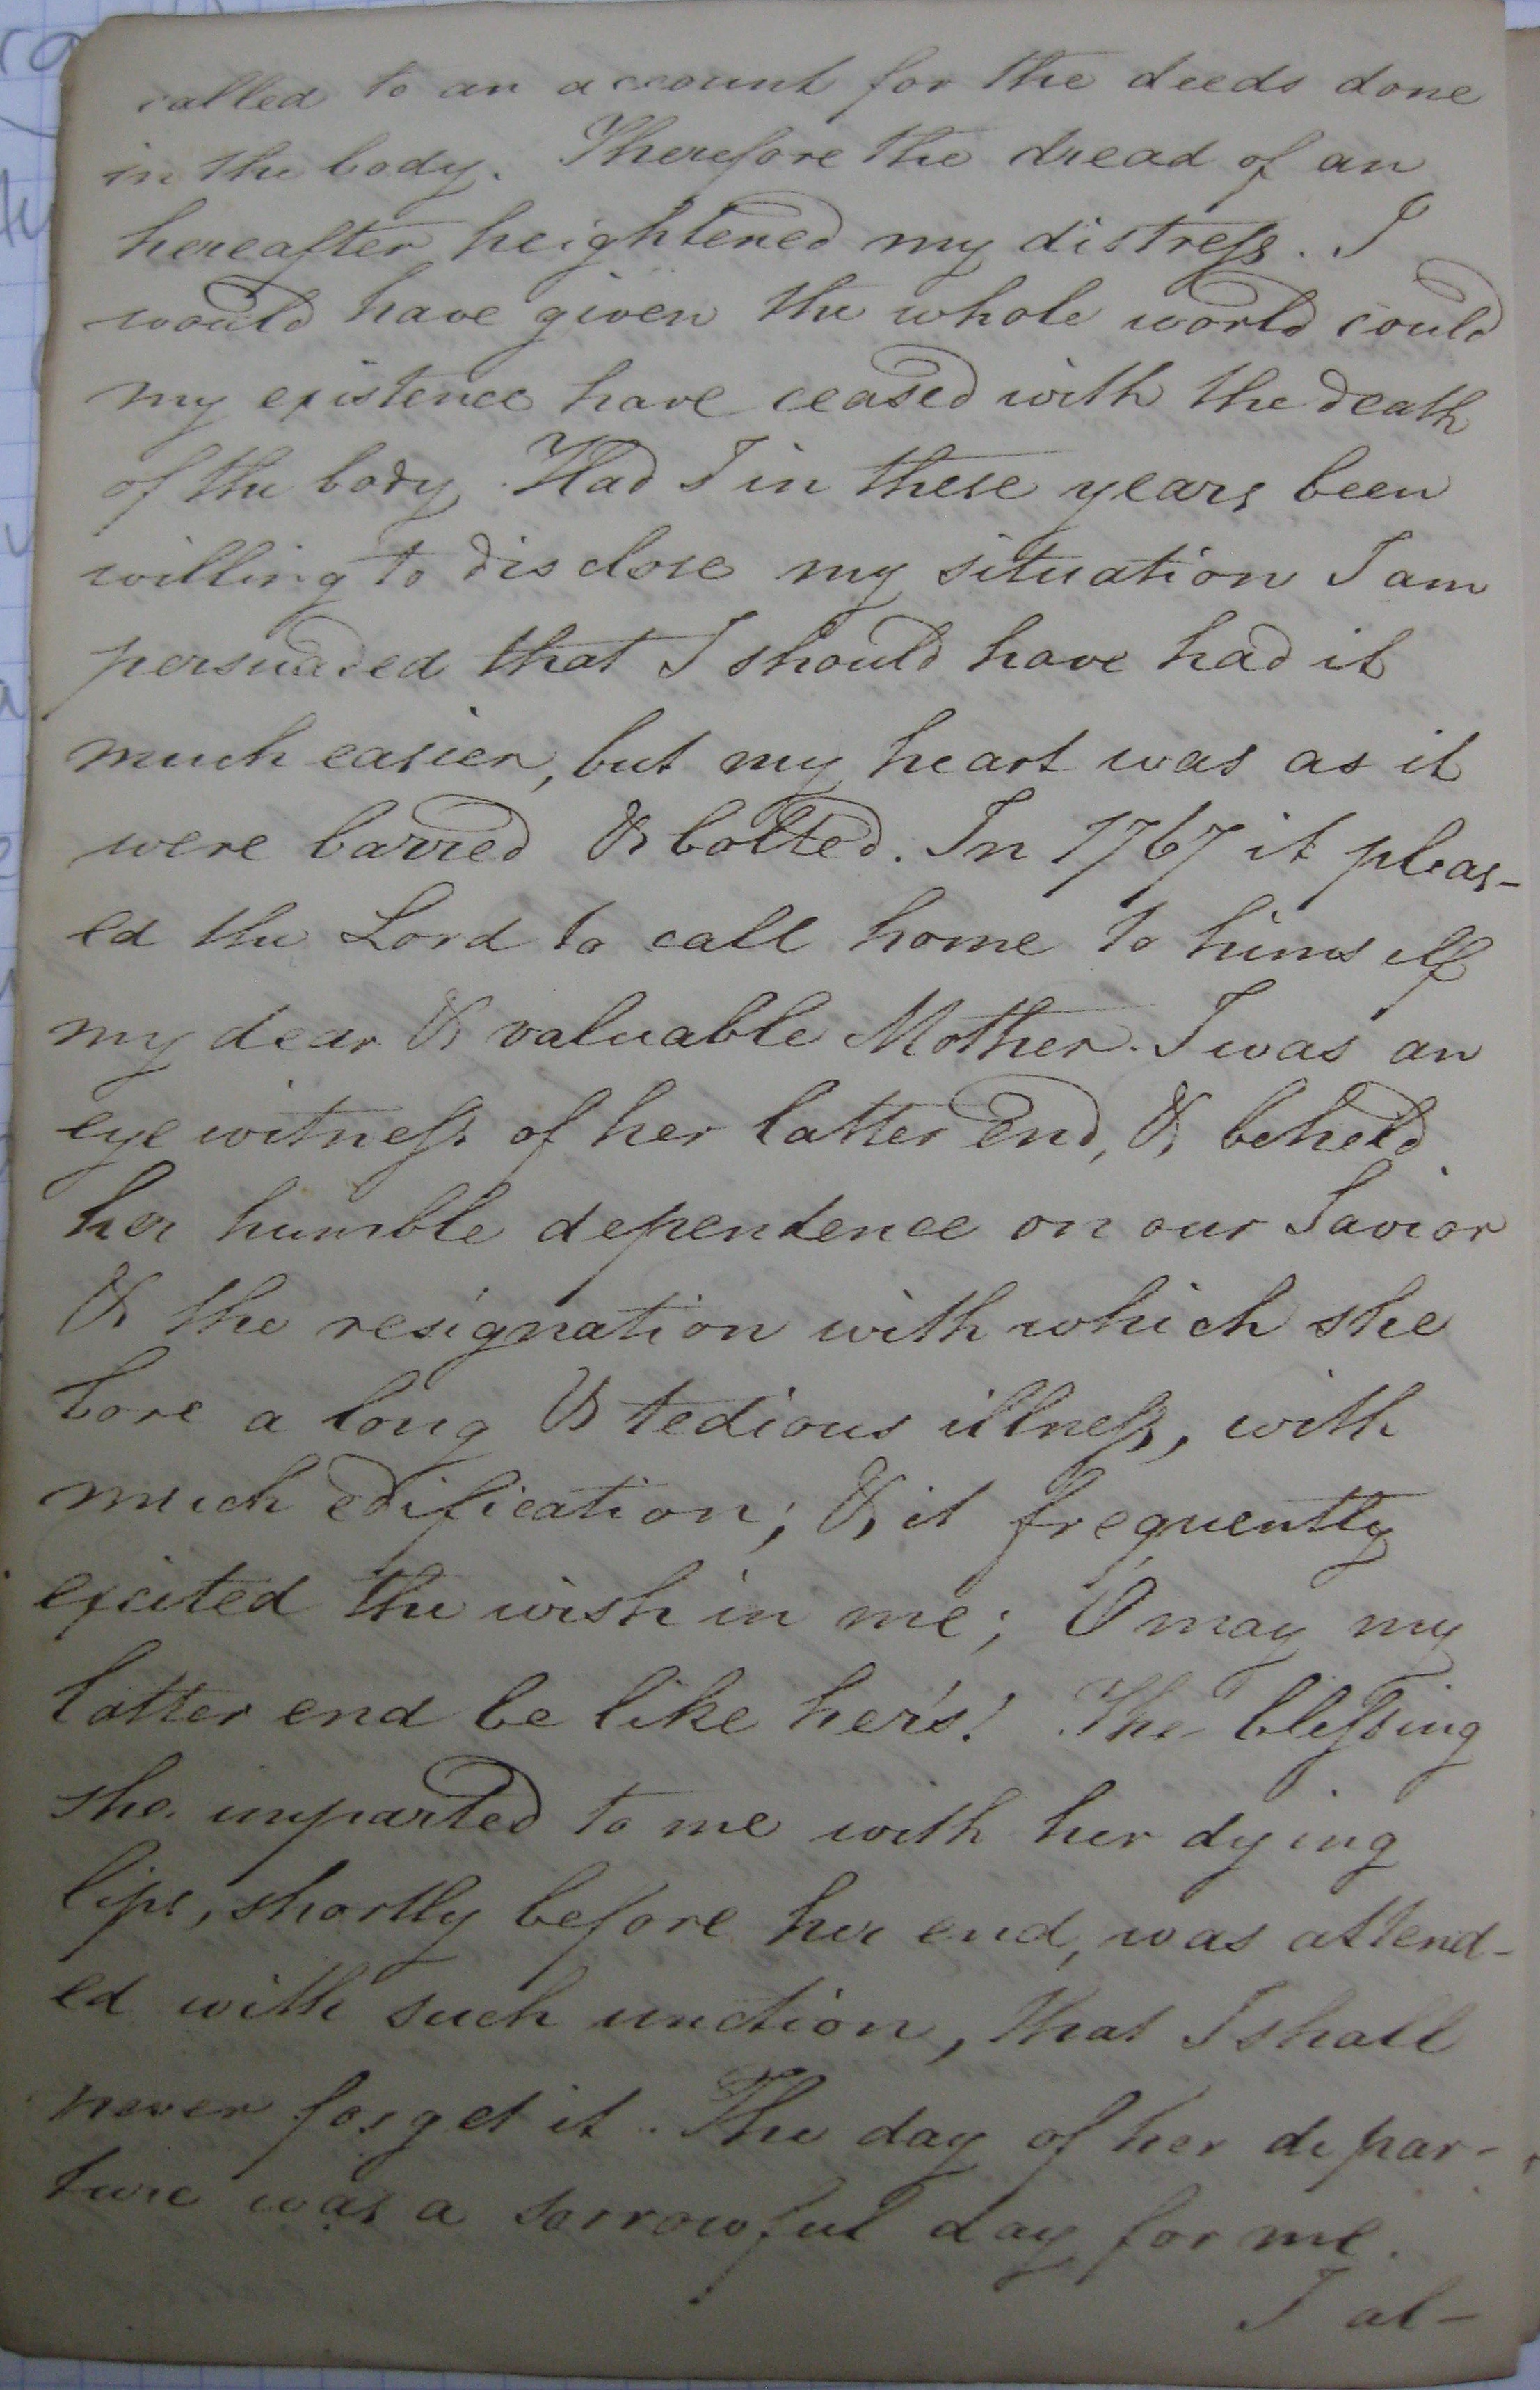 called to an account for the deeds done
in the body. Therefore the dread of an
hereafter heightened my distress. I
would have given the whole world could
my existence have ceased with the death
of the body. Had I in these years been
willing to disclose my situation I am
persuaded that I should have had it
much easier, but my heart was as it
were barred & bolted. In 1767 it pleas-
ed the Lord to call home to himself
my dear & valuable Mother. I was an
eye witness of her latter end, & beheld
her humble dependence on our Savior
& the resignation with which she
bore a long & tedious illness, with
much edification; & it frequently
excited the wish in me; O may my
latter end be like her's! The blessing
she imparted to me with her dying
lips, shortly before her end, was attend-
ed with such unction, that I shall
never forget it. The day of her depar-
ture was a sorrowful day for me.
I al-